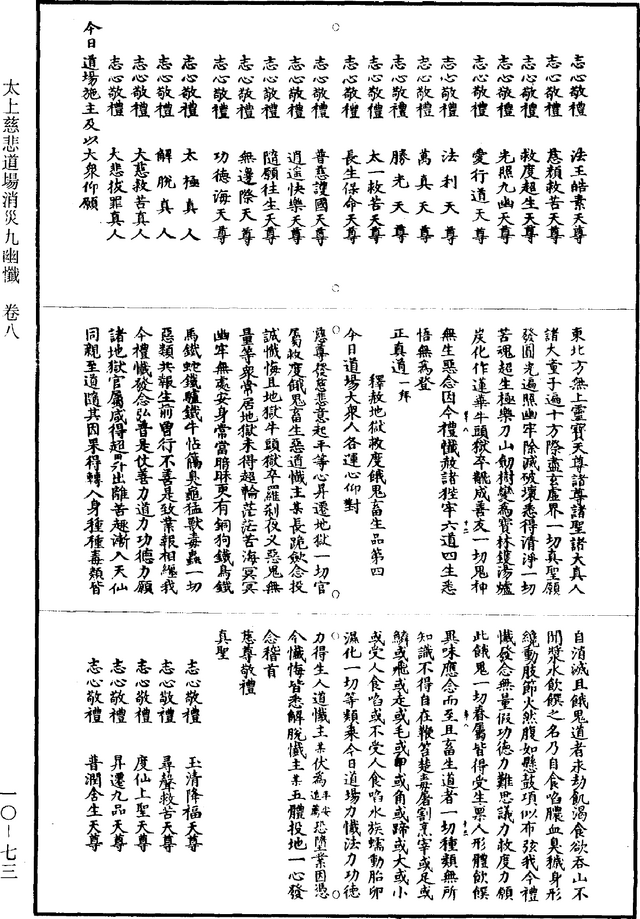 志心敬禮　法王皓素天尊
志心敬禮　慈顏救苦天尊
志心敬禮　救度超生天尊
志心敬禮　光照九幽天尊
志心敬禮　愛行道天尊
志心敬禮　法利天尊
志心敬禮　萬真天尊
志心敬禮　勝光天尊
志心敬禮　太一救苦天尊
志心敬禮　長生保命天尊
志心敬禮　普慈護國天尊
志心敬禮　逍遙快樂天尊
志心敬禮　隨願往生天尊
志心敬禮　無邊際天尊
志心敬禮　功德海天尊
志心敬禮　太極真人
志心敬禮　解脫真人
志心敬禮　大慈救苦真人
志心敬禮　大悲拔罪真人
今日道場施主及以大眾仰願
東北方無上靈寶天尊諸尊諸聖諸大真人
諸大童子遍十方際盡玄虛界一切真聖願
發圓光遍照幽牢除滅破壞悉得清淨一切
苦魂超生極樂刀山劒樹變為寶林鑊湯爐
炭化作蓮華牛頭獄卒飜成善友一切鬼神
無生惡念因今禮懺赦諸狴牢六道四生悉
悟無為登
正真道一拜
釋赦地獄救度餓鬼畜生品第四
今日道場大眾人各運心仰對
慈尊俊慈悲意起平等心昇遷地獄一切官
屬救度餓鬼畜生惡道懺主某長跪歛念投
誠懺悔且地獄牛頭獄卒羅剎夜叉惡鬼無
量等眾常居地獄未得超輪茫茫苦海冥冥
幽牢無處安身常當暗昧更有銅狗鐵鳥鐵
馬鐵蛇鐵驢鐵牛怗蕩臭龜猛獸毒蟲一切
惡類共報生前曾行不善是致業報相纏我
今禮懺發念弘普是仗善力道力功德力願
諸地獄官屬咸得超昇出離苦趣漸入天仙
同親至道隨其因果得轉人身種種毒類皆
自消滅且餓鬼道者永劫飢渴食欲吞山不
聞漿水飲饌之名乃自食焰膿血臭穢身形
纔動肢節火然腹如懸鼓項似布弦我今禮
懺發念無量假功德力難思議力救度力願
此餓鬼一切眷屬皆得受生果人形體飲饌
異味應念而至且畜生道者一切種類無所
知識不得自在鞭笞楚毒屠割烹宰或足或
鱗或飛或走或毛或甲或角或蹄或大或小
或受人食焰或不受人食焰水族蠕動胎卵
濕化一切等類乘今日道場力懺法力功德
力得生人道懺主某伏為平安追薦恐墮業因憑
今懺悔皆悉解脫懺主某五體投地一心發
念稽首
慈尊敬禮
真聖
志心敬禮　玉清降福天尊
志心敬禮　尋聲救苦天尊
志心敬禮　度仙上聖天尊
志心敬禮　昇遷九品天尊
志心敬禮　普潤含生天尊
太上慈悲道場消災九幽懺　卷八
一〇－七三